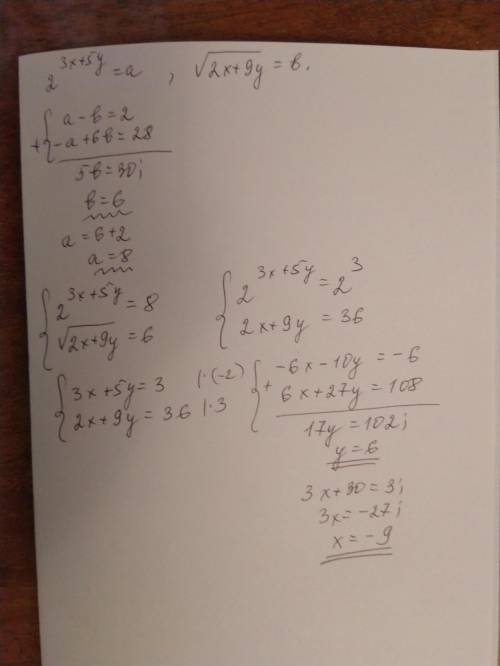 2^{3x+5y} = a, √(2x+9y) = b.
+{ a - b = 2
-a + 6b = 28
5b = 30;
b = 6
a = 6 + 2
a = 8
{ 2^{3x+5y} = 8
√(2x+9y) = 6
{ 2^{3x+5y} = 2^3
2x + 9y = 36
{ 3x + 5y = 3 |·(-2)
2x + 9y = 36 |·3
+{ -6x - 10y = -6
6x + 27y = 108
17y = 102;
y = 6
3x + 30 = 3;
3x = -27;
x = -9